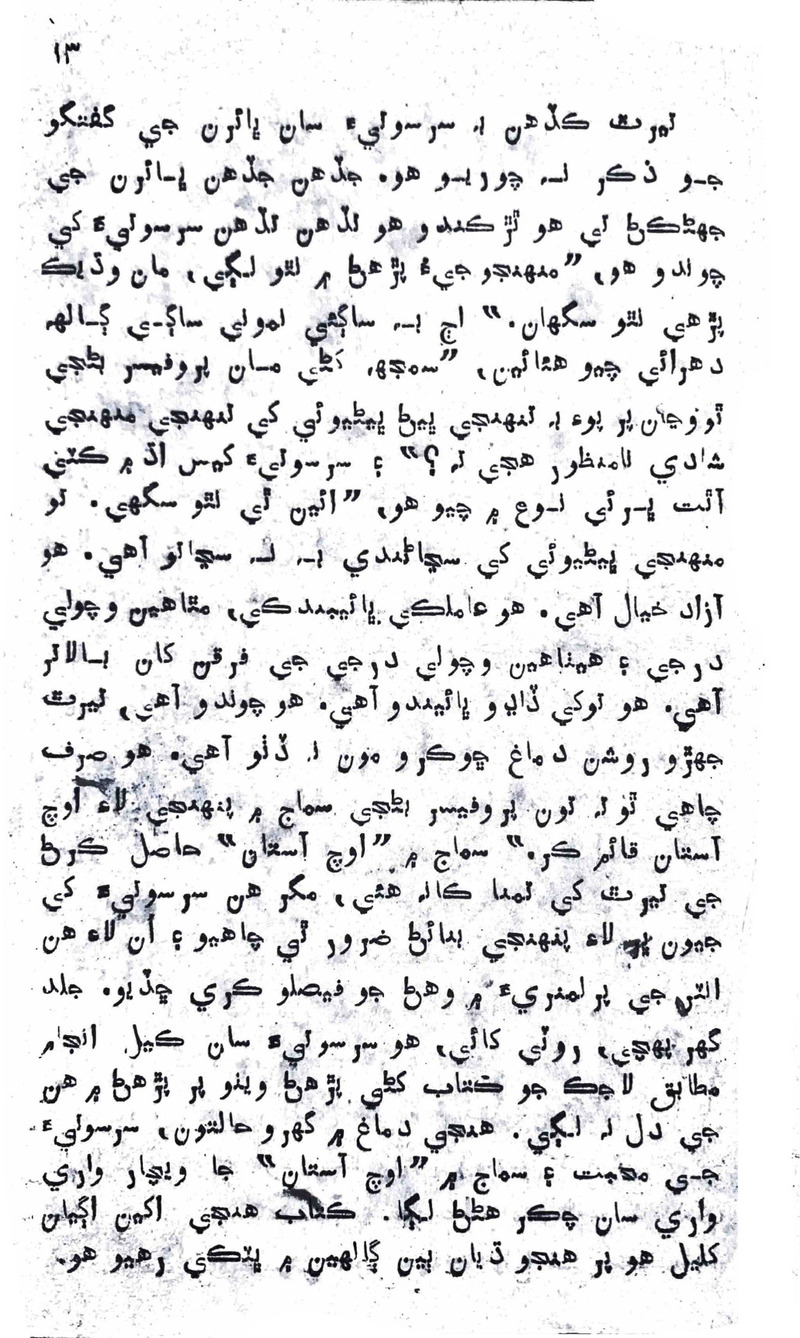 ۱۳
تيرٿ ڪڏهن بہ سرسوتيءَ سان ڀائرن جي گفتگو
جو ذڪر نہ چوريو هو. جڏهن جڏهن ڀائرن جي
جهڻڪڻ تي هو ٿڙڪندو هو تڏهن تڏهن سرسوتيءَ کي
چوندو هو، ”منهنجو جيءُ پڙهڻ ۾ نٿو لڳي، مان وڌيڪ
پڙهي نٿو سگهان.“ اڄ بہ ساڳئي نموني ساڳي ڳالهہ
دهرائي چيو هئائين، ”سمجهہ کڻي مان پروفيسر بڻجي
ٿو وڃان پر پوءِ بہ تنهنجي ڀيڻ ڀيڻيوئي کي تنهنجي منهنجي
شادي نامنظور هجي تہ؟“ ۽ سرسوتيءَ کيس اڌ ۾ ڪٽي
آٿت ڀرئي نوع ۾ چيو هو، ”ائين ٿي نٿو سگهي. تو
منهنجي ڀيڻيوئي کي سڃاڻندي بہ نہ سڃاتو آهي. هو
آزاد خيال آهي. هو عاملڪي ڀائيبندڪي، مٿاهين وچولي
درجي ۽ هيٺاهين وچولي درجي جي فرقن کان بالاتر
آهي. هو توکي ڏاڍو ڀائيندو آهي. هو چوندو آهي، تيرٿ
جهڙو روشن دماغ ڇوڪرو مون نہ ڏٺو آهي. هو صرف
چاهي ٿو تہ تون پروفيسر بڻجي سماج ۾ پنهنجي لاءِ اوچ
آستان قائم ڪر.“ سماج ۾ ”اوچ آستان“ حاصل ڪرڻ
جي تيرٿ کي تمنا ڪانہ هئي، مگر هن سرسوتيءَ کي
جيون ڀر لاءِ پنهنجي بنائڻ ضرور ٿي چاهيو ۽ ان لاءِ هن
انٽر جي پرلمنريءَ ۾ وهڻ جو فيصلو ڪري ڇڏيو. جلد
گهر پهچي، روٽي کائي، هو سرسوتيءَ سان ڪيل انجام
مطابق لاجڪ جو ڪتاب کڻي پڙهڻ ويٺو پر پڙهڻ ۾ هن
جي دل نہ لڳي. هنجي دماغ ۾ گهرو حالتون، سرسوتيءَ
جي محبت ۽ سماج ۾ ”اوچ آستان“ جا ويچار واري
واري سان چڪر هڻڻ لڳا. ڪتاب هنجي اکين اڳيان
کليل هو پر هنجو ڌيان ٻين ڳالهين ۾ ڀٽڪي رهيو هو.